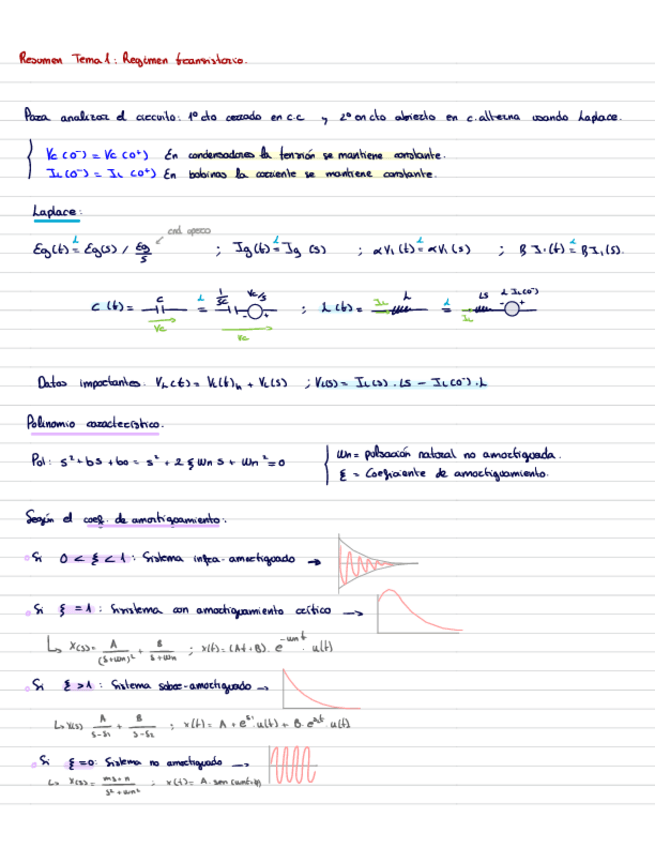 Resumen Tema 1: Regimen transistorio.
Para analizar el circuito: 1º cto cerrado en c.c y 2º en cto abierto en c.alterna usando Laplace.
Vc (0⁻) = Vc (0⁺) En condensadores la tensión se mantiene constante.
IL (0⁻) = IL (0⁺) En bobinas la corriente se mantiene constante.
Laplace:
Eg(t) =ᴸ Eg(s) / Eg/s ; Ig(t) =ᴸ Ig (s) ; αV₁ (t) =ᴸ αV₁ (s) ; β I₁ (t) =ᴸ β I₁ (s).
C (t) = C Vc =ᴸ 1/sC Vc/s + Vc ; L (t) = IL L =ᴸ LS L IL(0⁻) - + IL
Datos importantes:
Polinomio característico.
Pol: s² + bs + b0 = s² + 2 ξ Wn s + Wn² = 0
Wn = pulsación natural no amortiguada.
ξ = Coeficiente de amortiguamiento.
Según el coef. de amortiguamiento:
Si 0 < ξ < 1 : Sistema infra-amortiguado →
Si ξ = 1 : Sinstema con amortiguamiento crítico →
↳ X(s) = A/(s+wn)² + B/s+wn ; x(t) = (At + B) . e^-wnt . u(t)
Si ξ > 1 : Sistema sobre-amortiguado →
↳ X(s) A/s-s₁ + B/s-s₂ ; x(t) =
Si ξ = 0: Sistema no amortiguado →
↳ X(s) = ms+n/s²+wn² ; x(t) = A. sen